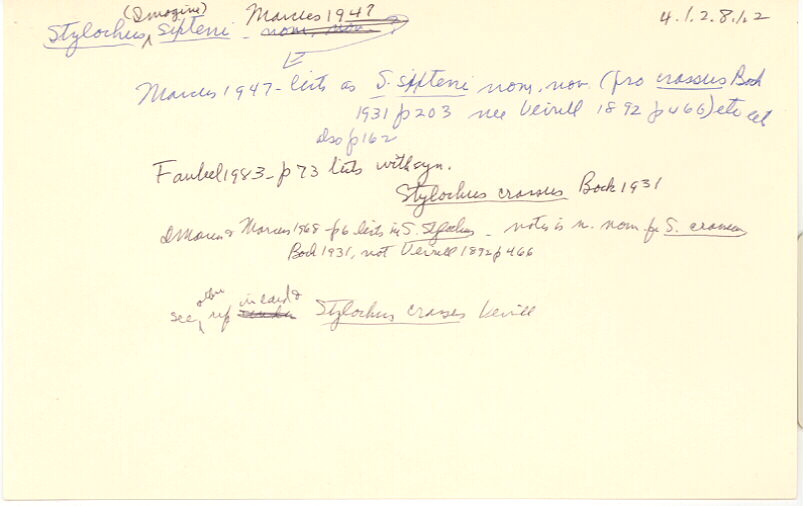 (Imogine) Marcus 1947 4.1.2.8.62
Stylochus ^ sixteni - nom. nov.
Marcus 1947 - lists as S. sixteni nom. nov. (pro crassus Bock
1931 p203 nec Verrill 1892 p466) etc
also p162
Faubel 1983 - p73 lists with syn.
Stylochus crassus Bock 1931
Marcus & Marcus 1968 - p6 lists in S. Stylochus - notes is n. nom for S. crassus
Bock 1931, not Verrill 1892 p466
see ^ other ref in card Stylochus crassus Verrill